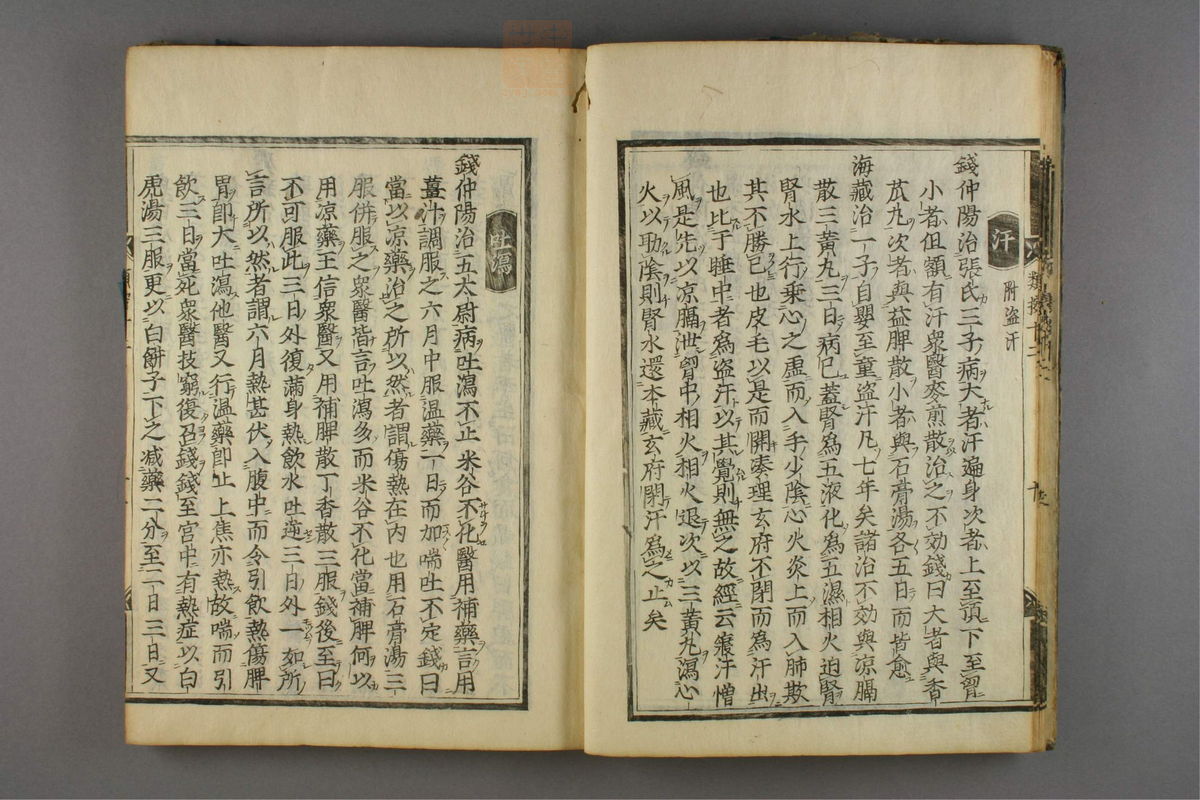 汗 附盗汗
錢仲陽治張氏三子病大者汗遍身次者上至頂下至胷
小者但額有汗衆醫麥煎散治之不効錢曰大者與香
苽丸次者與益脾散小者與石膏湯各五日而皆愈
海藏治一子自嬰至童盗汗凡七年矣諸治不効與凉膈
散三黄丸三日病已蓋腎為五液化為五濕相火迫腎
腎水上行乗心之虚而入手少陰心火炎上而入肺欺
其不勝已也皮毛以是而開湊理玄府不閉而為汗出
也比于睡中者為盗汗以其覺則無之故經云寢汗憎
風是先以凉膈泄胷中相火相火退次以三黄丸瀉心
火以助陰則腎水還本藏玄府閉汗為之止矣
吐瀉
錢仲陽治五太尉病吐瀉不止米谷不化醫用補藥言用
薑汁調服之六月中服温藥一日而加喘吐不定錢曰
當以凉藥治之所以然者謂傷熱在内也用石膏湯三
服併服之衆醫皆言吐瀉多而米谷不化當補脾何以
用凉藥王信衆醫又用補脾散丁香散三服錢後至曰
不可服此三日外復滿身熱飲水吐逆三日外一如所
言所以然者謂六月熱甚伏入腹中而令引飲熱傷脾
胃即大吐瀉他醫又行温藥即止上焦亦熱故喘而引
飲三日當死衆醫技窮復召錢錢至宫中有熱症以白
虎湯三服更以白餅子下之减藥二分至二日三日又